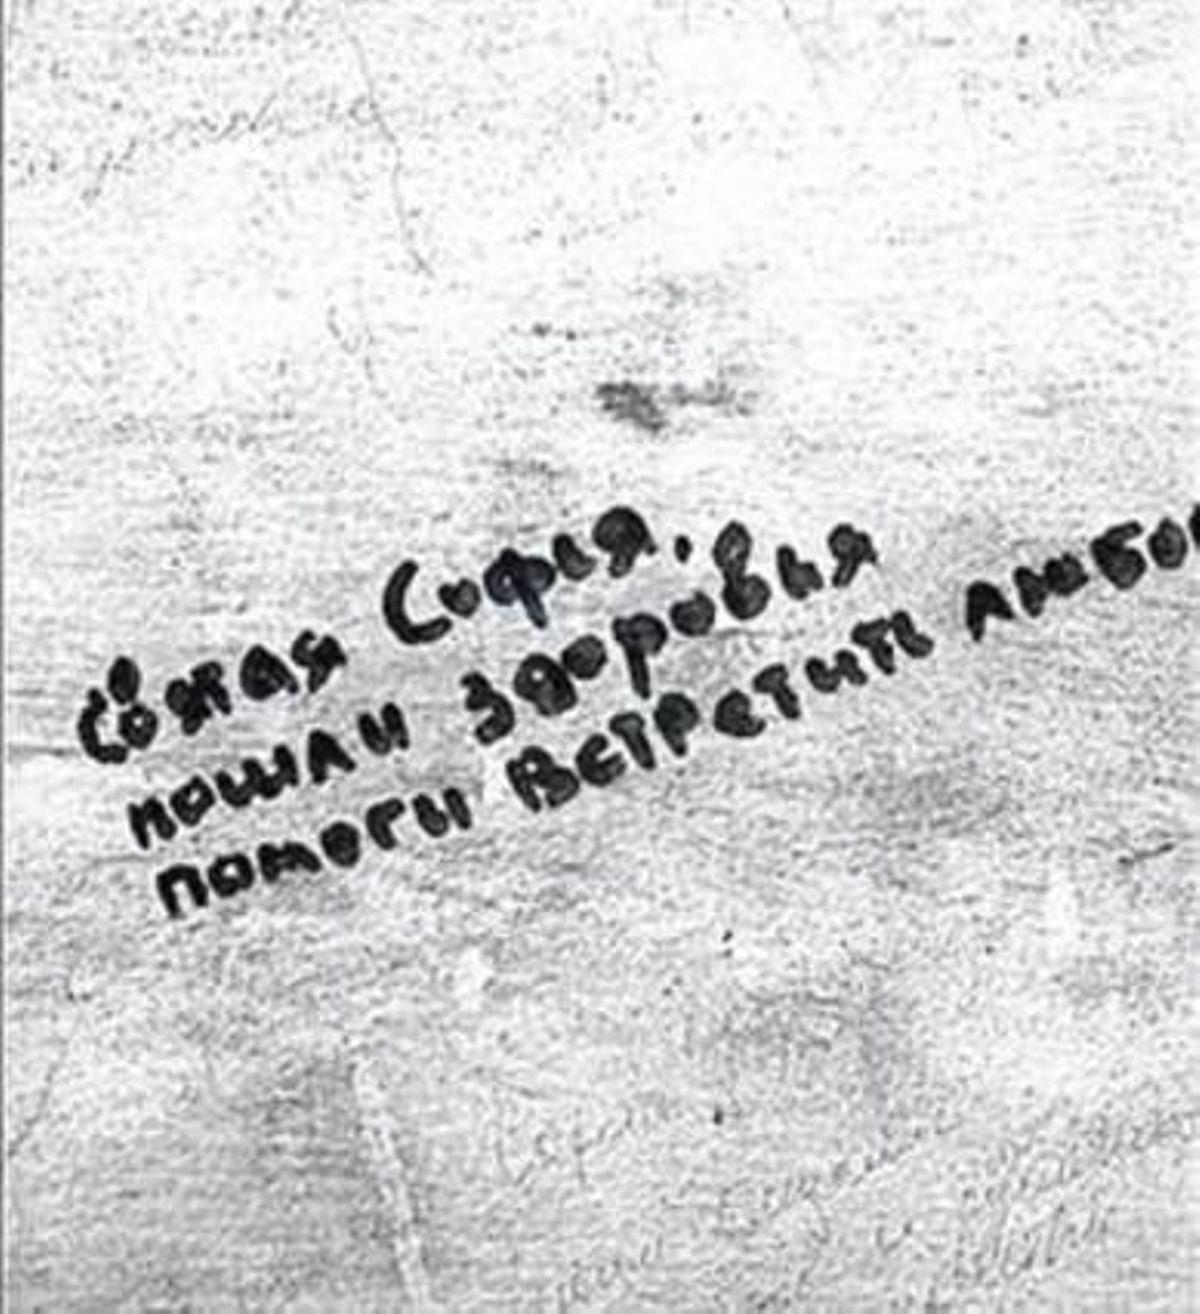 Святая София.
пошли здоровья
помоги встретить любов